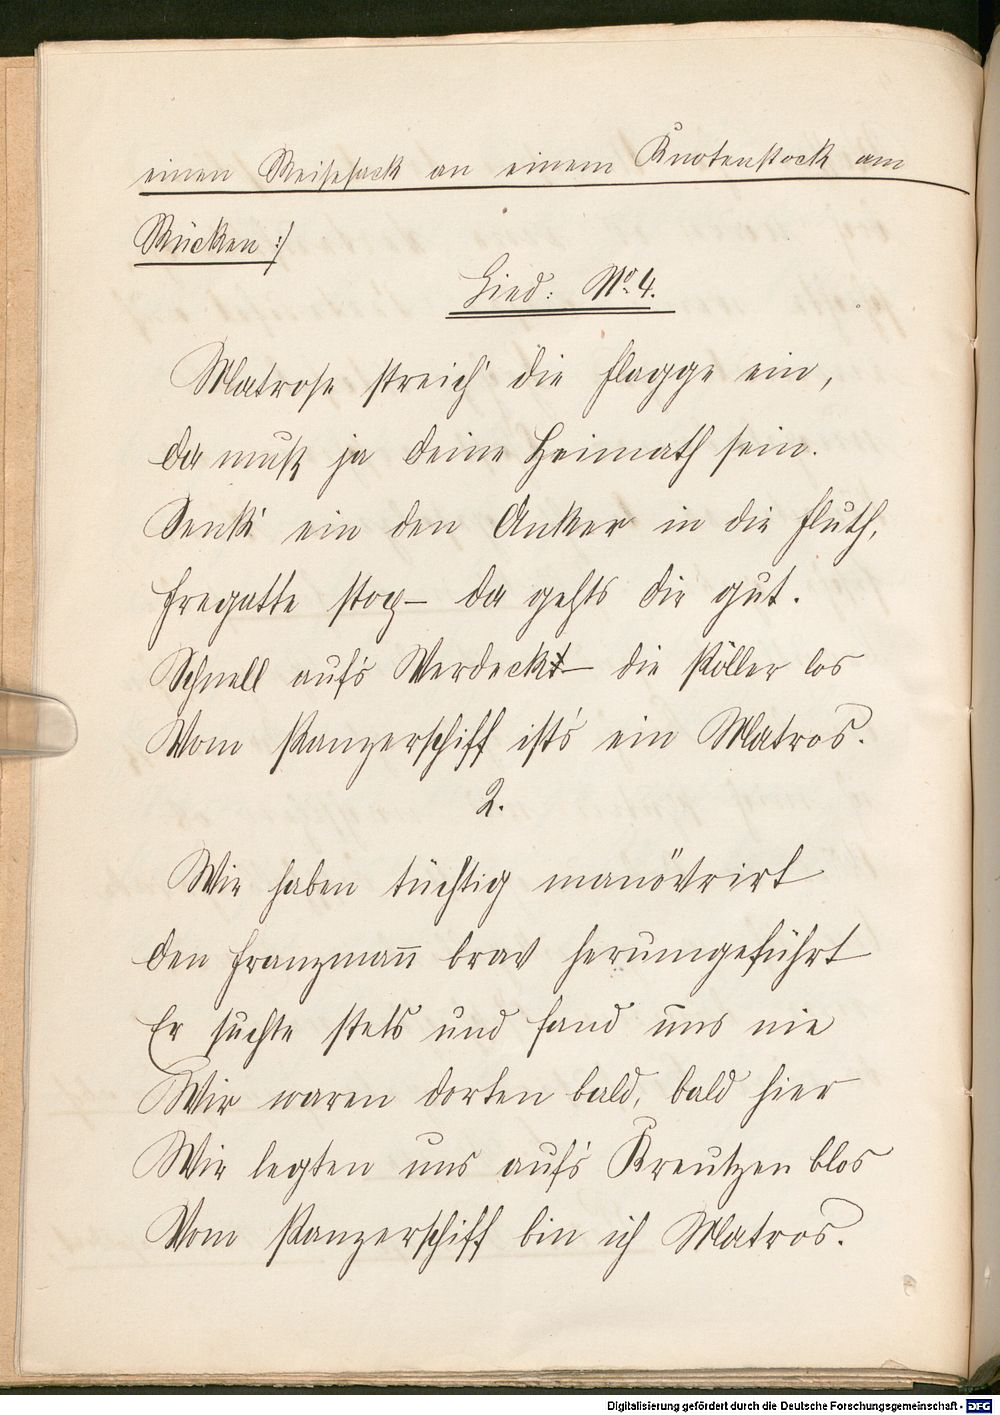 einen Reisesack an einem Knotenstock am
Rücken :/
Lied: No. 4.
Matrose streich' die Flagge ein,
da muß ja deine Heimath sein.
Senk' ein den Anker in die Fluth,
Fregatte stop – da gehts dir gut.
Schnell auf's Verdeck – die Pöller los
Vom Panzerschiff ist's ein Matros.
2.
Wir haben tüchtig manövrirt
den Franzmann brav herumgeführt
Er suchte stets und fand uns nie
Wir waren dorten bald, bald hier
Wir legten uns auf's Kreutzen blos
Vom Panzerschiff bin ich Matros.
Digitalisierung gefördert durch die Deutsche Forschungsgemeinschaft - DFG